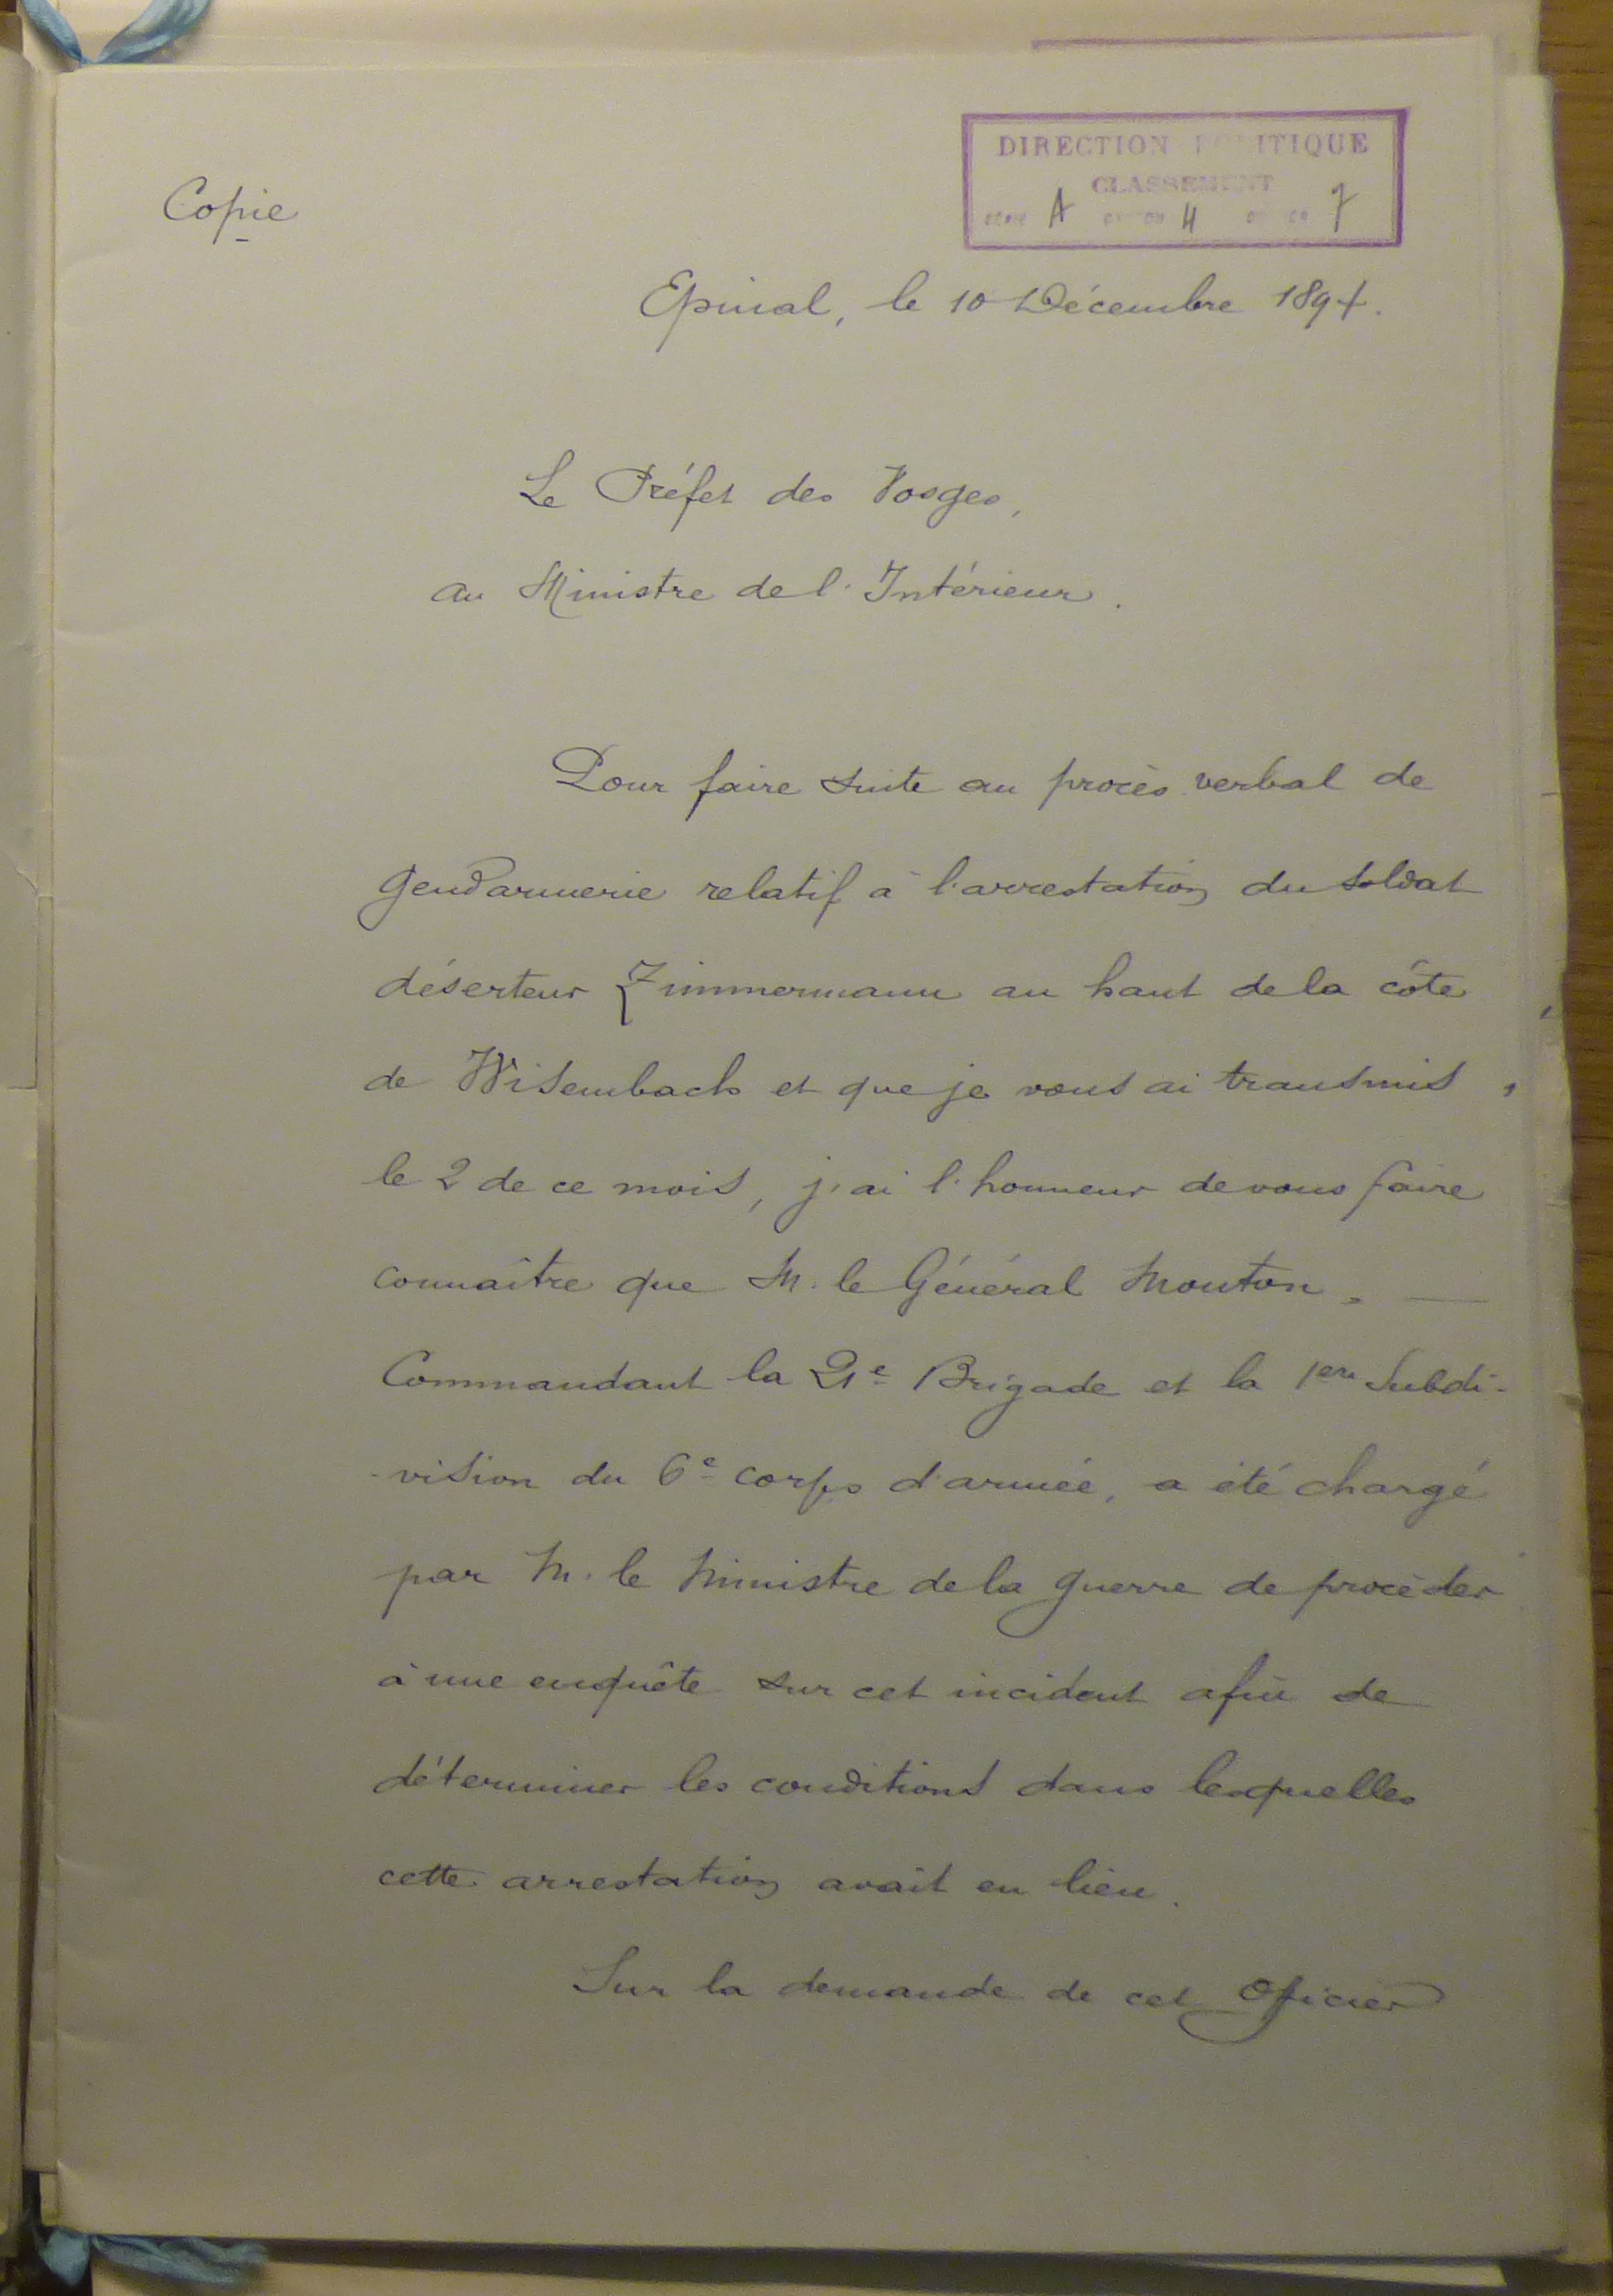 DIRECTION POLITIQUE
CLASSEMENT
A 4 7
Copie
Epinal, le 10 Décembre 1897.
Le Préfet des Vosges,
au Ministre de l'Intérieur.
Pour faire suite au procès verbal de
Gendarmerie relatif à l'arrestation du soldat
déserteur Zimmermann au haut de la côte
de Wisembach et que je vous ai transmis,
le 2 de ce mois, j'ai l'honneur de vous faire
connaître que M. le Général Mouton,
Commandant la 21e Brigade et la 1ere Subdi-
-vision du 6e corps d'armée, a été chargé
par M. le Ministre de la guerre de procèder
à une enquête sur cet incident afin de
déterminer les conditions dans lesquelles
cette arrestation avait eu lieu.
Sur la demande de cet Officier